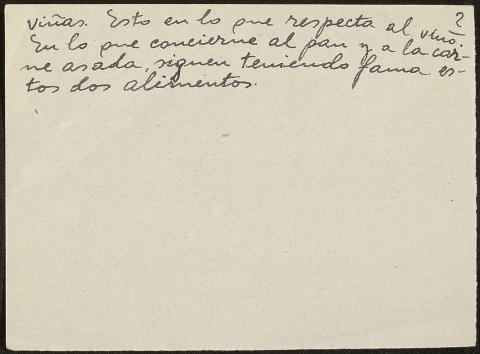 2
viñas. Esto en lo que respecta al vino.
En lo que concierne al pan y a la car-
ne asada, siguen teniendo fama es-
tos dos alimentos.